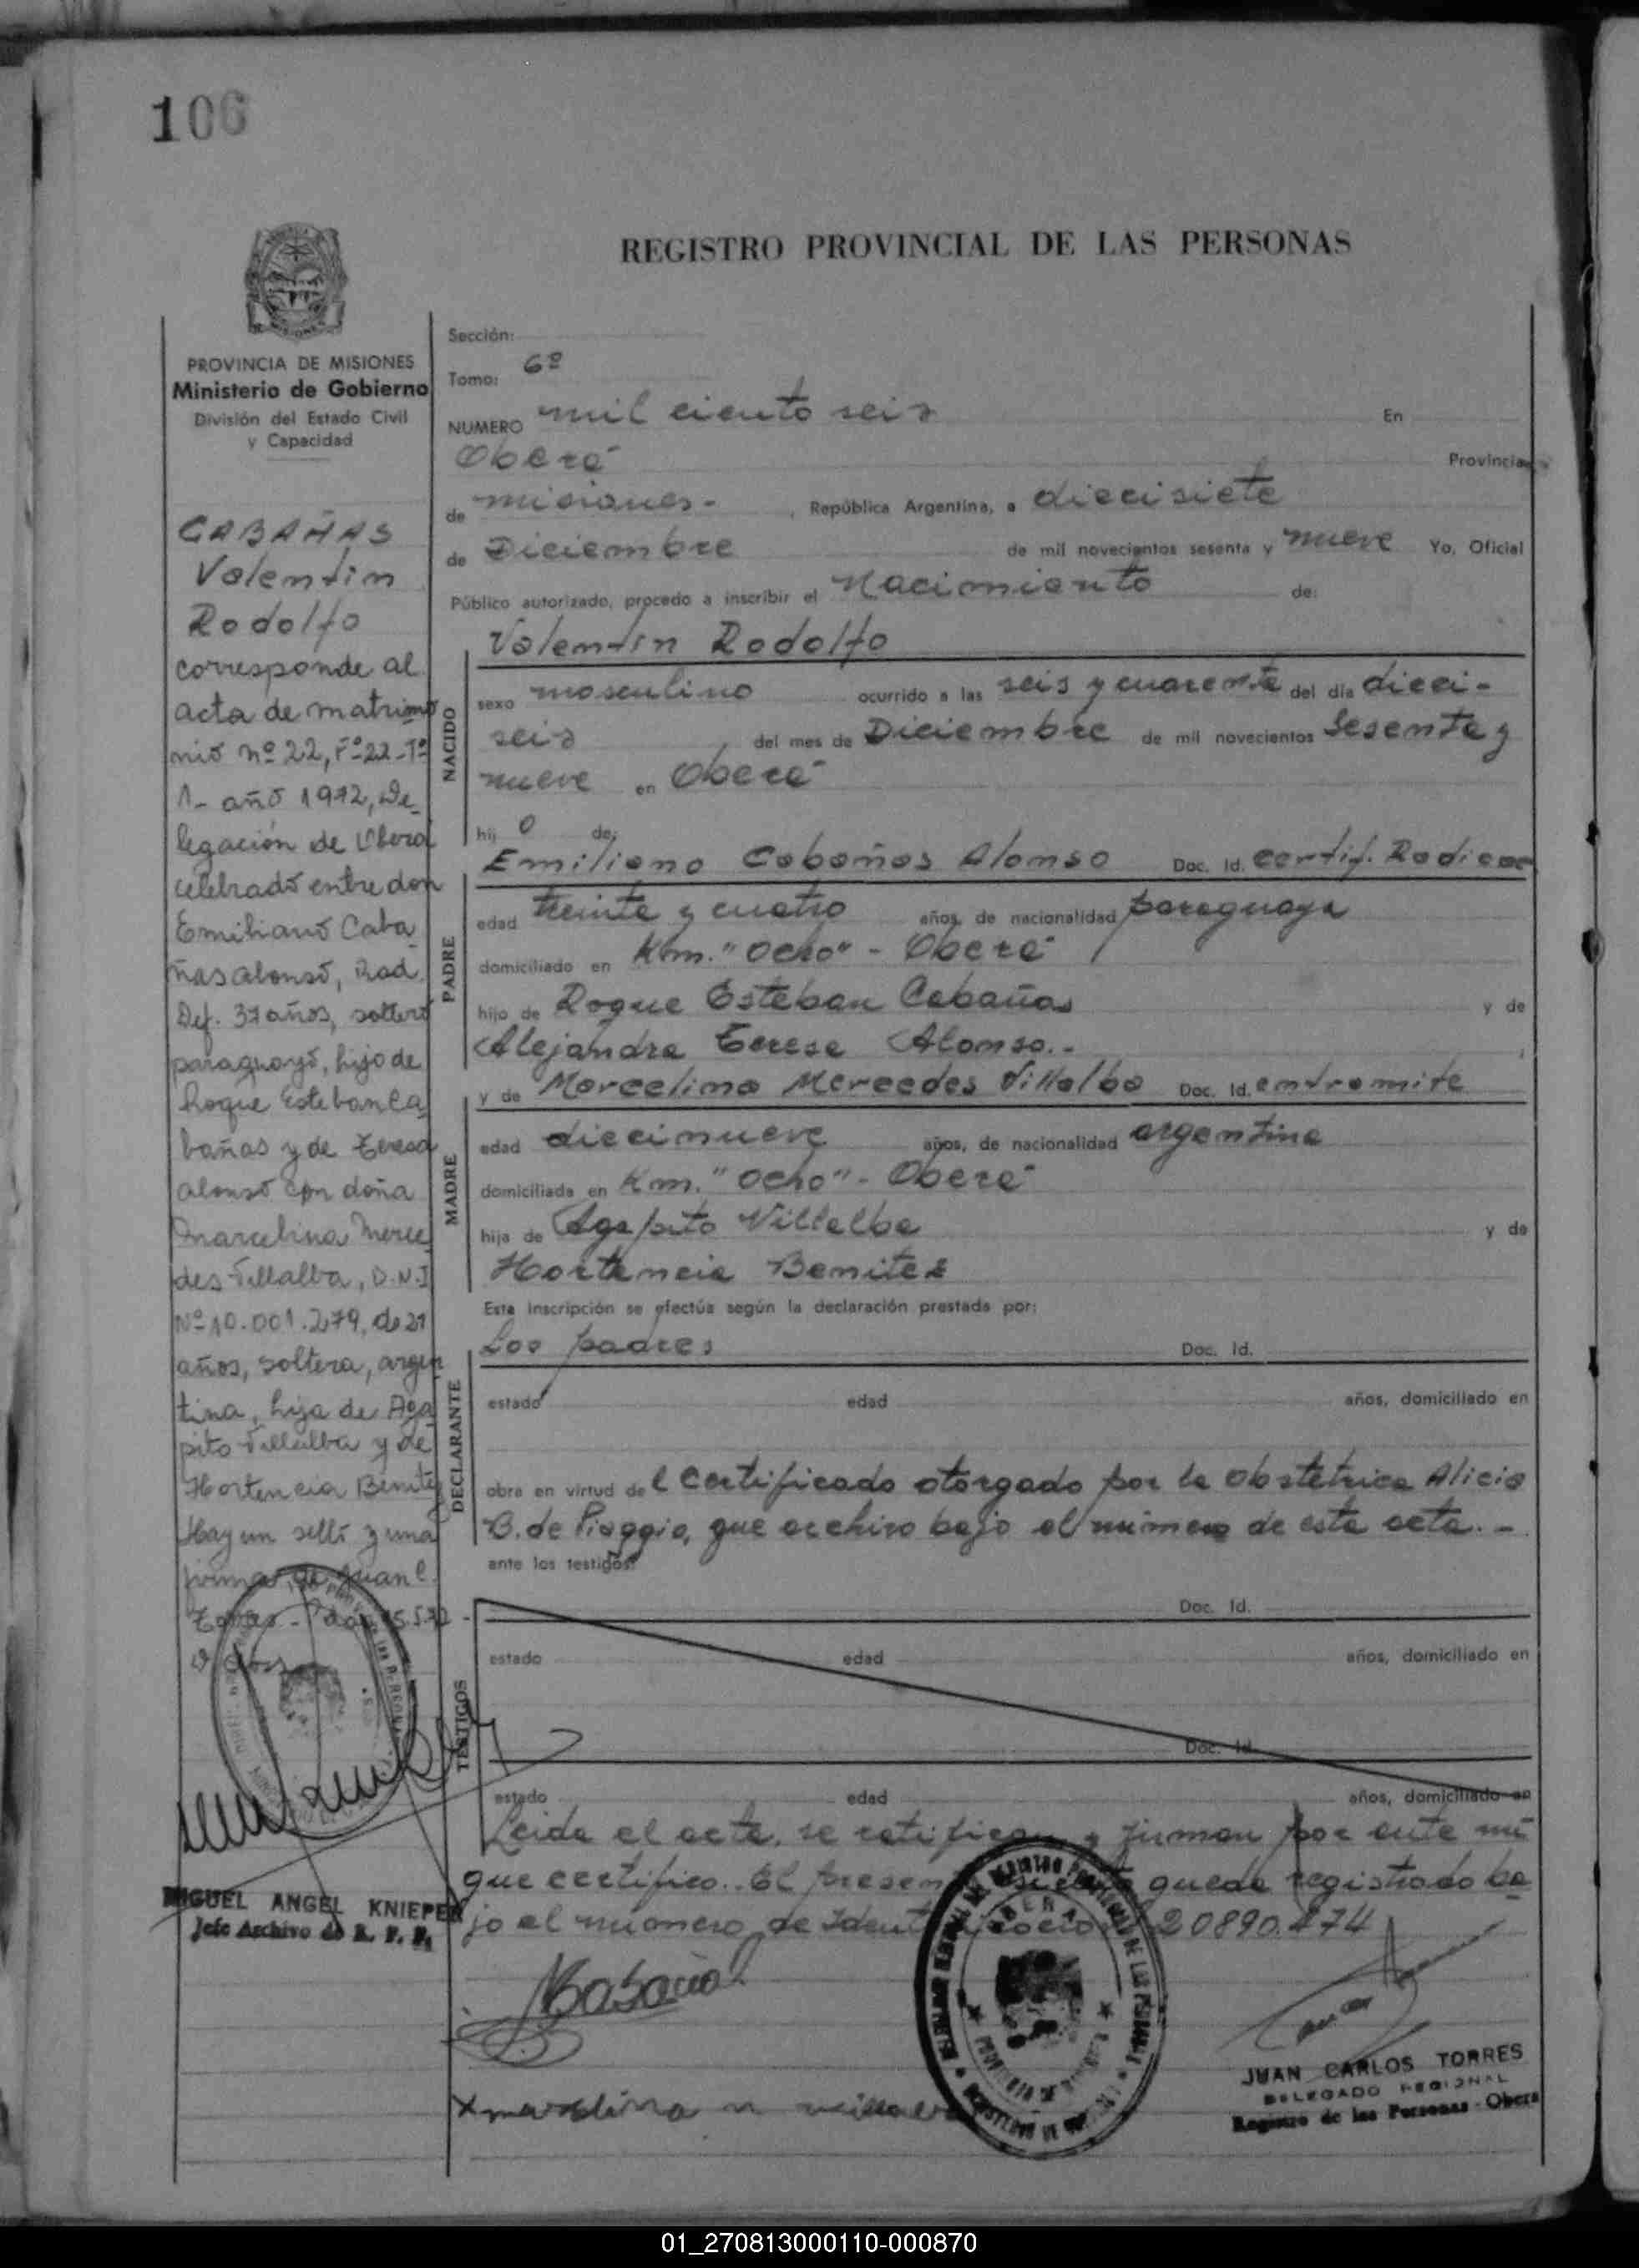 106
REGISTRO PROVINCIAL DE LAS PERSONAS
PROVINCIA DE MISIONES
Ministerio de Gobierno
División del Estado Civil
y Capacidad
CABAÑAS
Valentin
Rodolfo
corresponde al
acta de matrimo
nio nº 22, Fº 22-Tº
1- año 1972, De
legación de Oberá
celebrado entre don
Emiliano Caba
ñas Alonso, Rad.
Def. 37 años, soltero
paraguayo, hijo de
Roque Esteban Ca
bañas y de Teresa
Alonso con doña
Marcelina Merce
des Villalba, D.N.I
Nº 10.001.279, de 21
años, soltera, argen
tina, hija de Aga
pito Villalba y de
Hortencia Benitez
Hay un sello y una
firma de Juan C.
MIGUEL ANGEL KNIEPER
Jefe Archivo de R. P. P.
Sección:
Tomo: 6º
NUMERO mil ciento seis En
Oberá Provincia
de misiones.- , República Argentina, a diecisiete
de Diciembre de mil novecientos sesenta y nueve Yo, Oficial
Público autorizado, procedo a inscribir el Nacimiento de:
Valentin Rodolfo
NACIDO
sexo masculino ocurrido a las seis y cuarenta del día dieci-
seis del mes de Diciembre de mil novecientos Sesenta y
nueve en Oberá
hij o de:
Emiliano Cabañas Alonso Doc. Id. certif. Radicac
PADRE
edad treinta y cuatro años, de nacionalidad paraguaya
domiciliado en Km. "Ocho" - Oberá
hijo de Roque Esteban Cabañas y de
Alejandra Teresa Alonso.-
y de Marcelina Mercedes Villalba Doc. Id. en tramite
MADRE
edad diecinueve años, de nacionalidad argentina
domiciliada en Km. "Ocho" - Oberá
hija de Agapito Villalba y de
Hortencia Benitez
Esta inscripción se efectúa según la declaración prestada por:
Los padres Doc. Id.
DECLARANTE
estado edad años, domiciliado en
obra en virtud de l Certificado otorgado por la Obstetrica Alicia
B. de Piaggio, que archivo bajo el número de esta acta.-
ante los testigos:
Doc. Id.
TESTIGOS
estado edad años, domiciliado en
Doc. Id.
estado edad años, domiciliado en
Leida el acta, se ratifican y firman por ante mi
que certifico. El presen queda registrado ba
jo el número de Identificación 20890.474
Cabañas
x marselina m villalba
JUAN CARLOS TORRES
DELEGADO REGIONAL
Registro de las Personas - Oberá
01_270813000110-000870